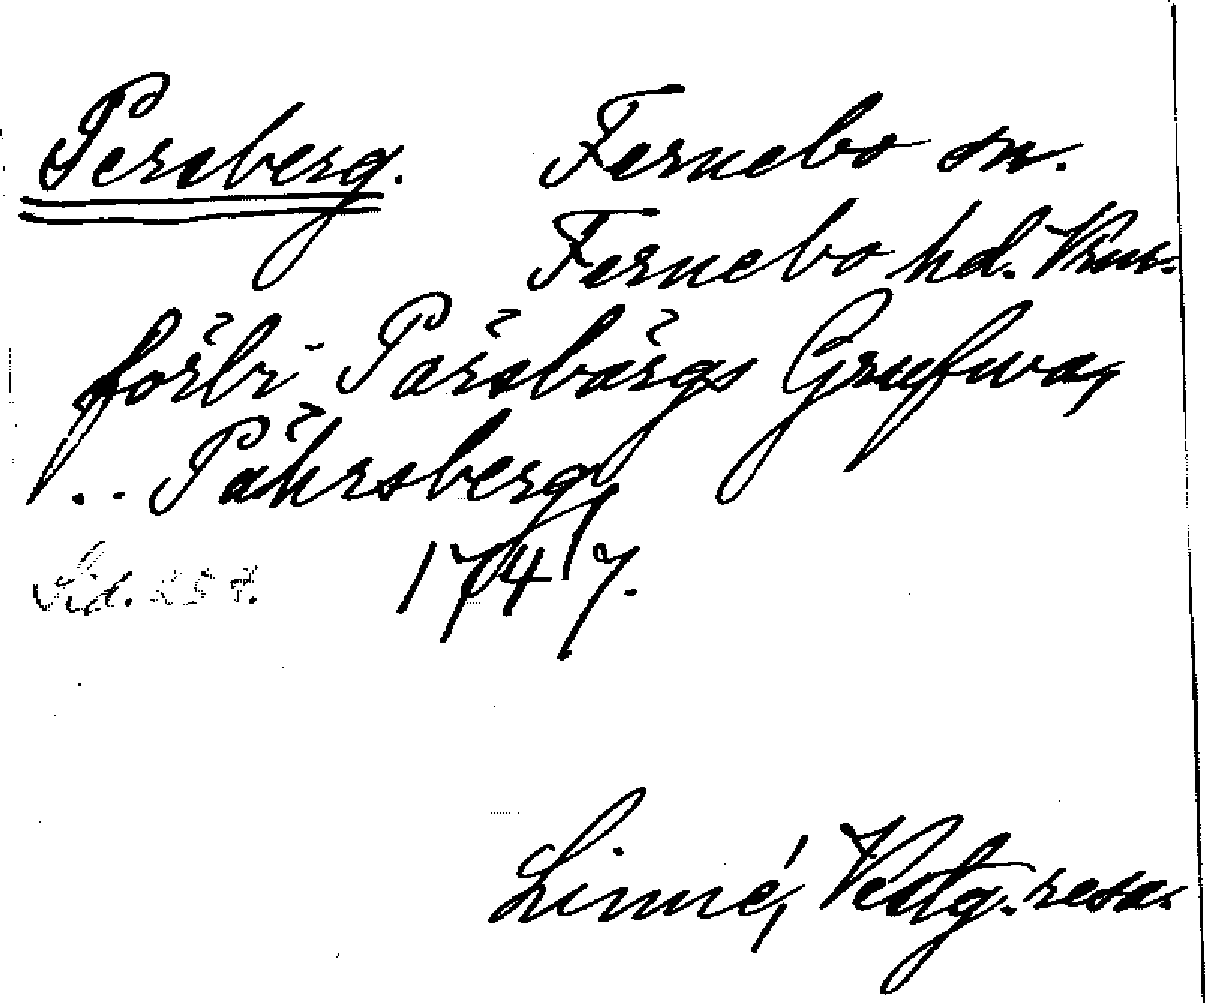 Persberg. Fernebo sn.
Fernebo hd. Vrm.
förbi Pärsbärgs Grufwa,
.. Påhrsberg
Sid. 257. 1747.
Linné, Vestg. resa.